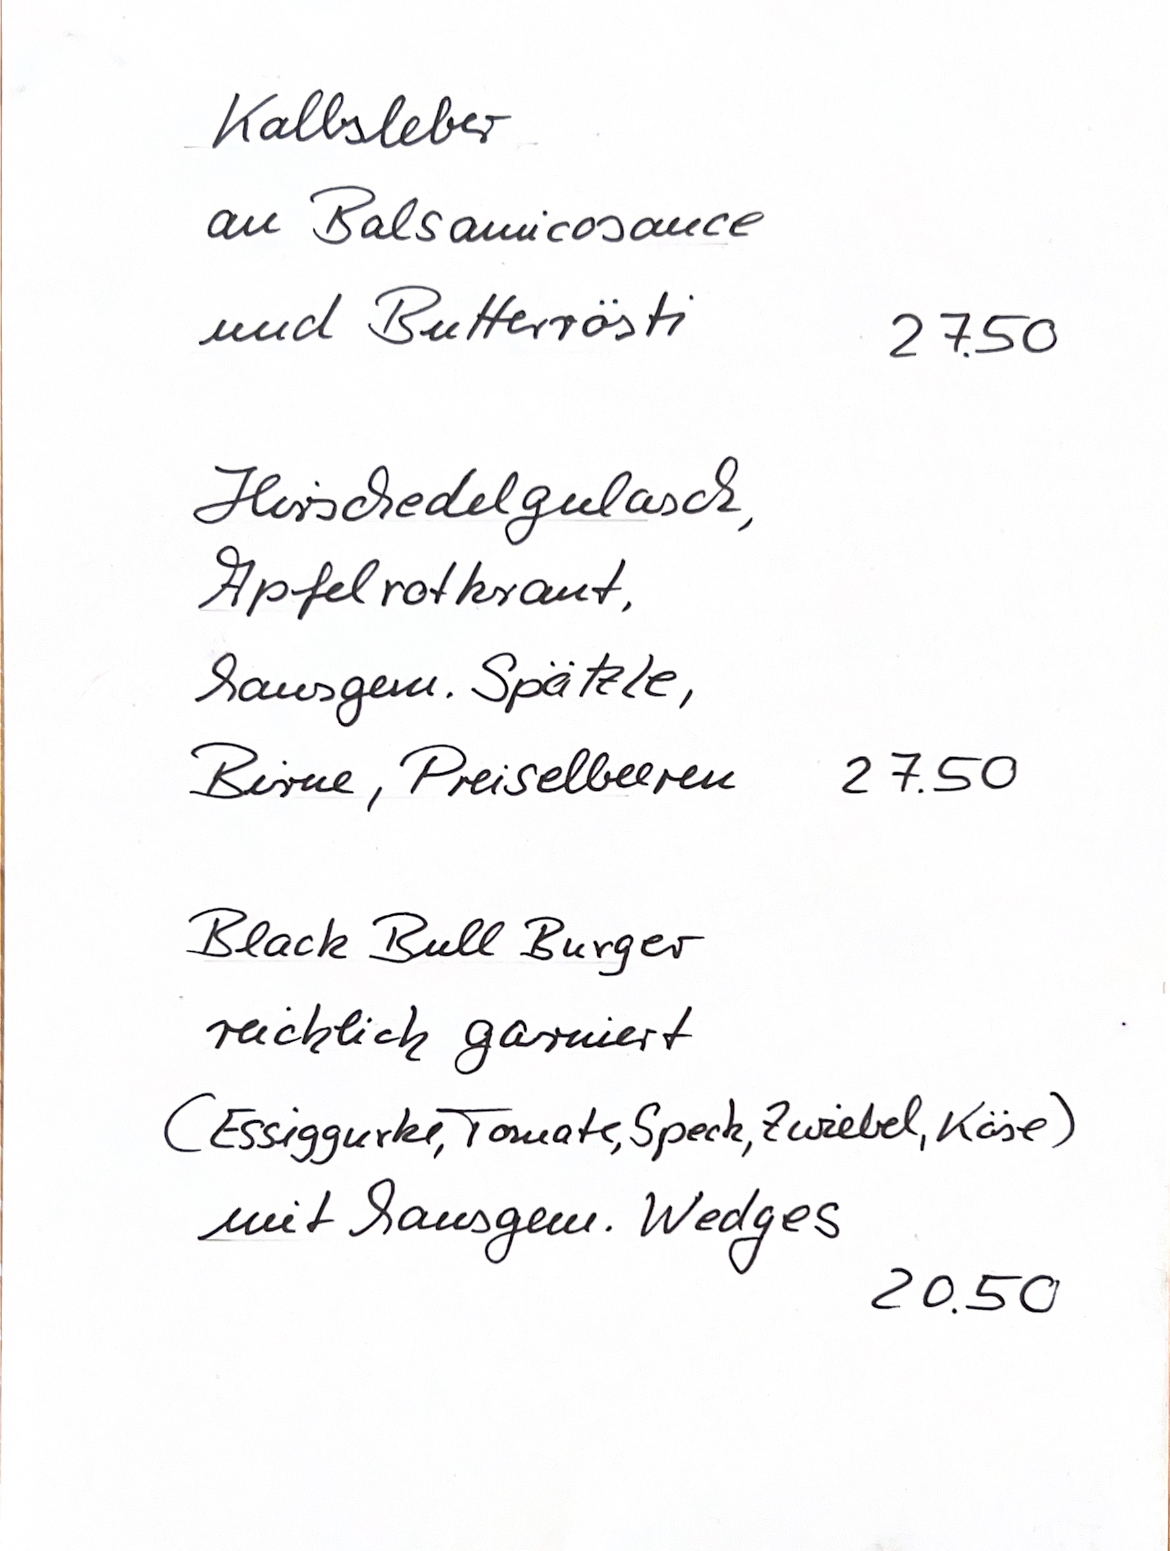 Kalbsleber
an Balsamicosauce
und Butterrösti 27.50
Hirschedelgulasch,
Apfelrotkraut,
hausgem. Spätzle,
Birne, Preiselbeeren 27.50
Black Bull Burger
reichlich garniert
(Essiggurke, Tomate, Speck, Zwiebel, Käse)
mit hausgem. Wedges
20.50